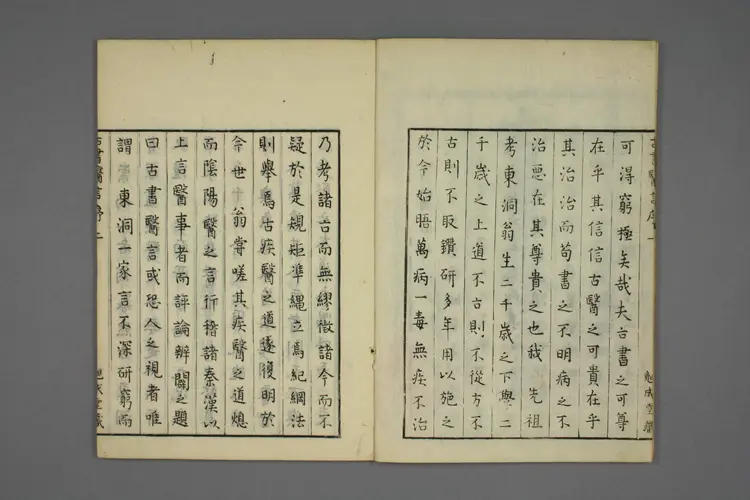 可得窮極矣哉夫古書之可尊
在乎其信信古醫之可貴在乎
其治治而苟書之不明病之不
治惡在其尊貴之也我　先祖
考東洞翁生二千歲之下與二
千歲之上道不古則不從方不
古則不取鑽研多年用以施之
於今始晤萬病一毒無疾不治
乃考諸古而無繆徵諸今而不
疑於是規矩準繩立焉紀綱法
則舉焉古疾醫之道遂復明於
今世　翁嘗嗟其疾醫之道熄
而陰陽醫之言行稽諸秦漢以
上言醫事者而評論辨闢之題
曰古書醫言或恐人之視者唯
謂　東洞一家言不深研窮而
古書醫言序 二